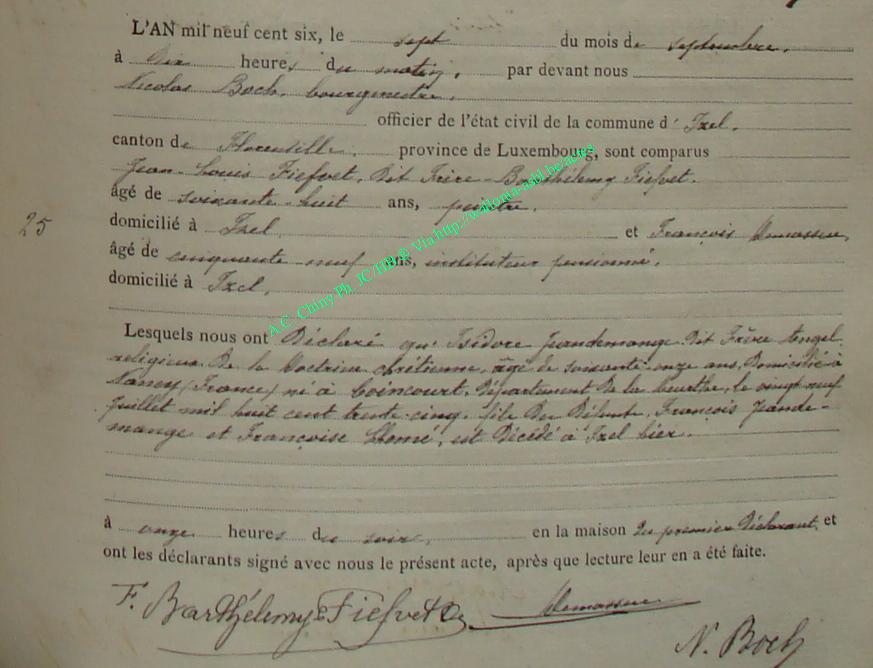 L'AN mil neuf cent six, le sept du mois de septembre,
à dix heures du matin, par devant nous
Nicolas Boch, bourgmestre,
officier de l'état civil de la commune d'Izel,
canton de Florenville, province de Luxembourg, sont comparus
Jean-Louis Fiefvet, dit Frère Barthélemy Fiefvet.
âgé de soixante-huit ans, peintre,
25
domicilié à Izel et François
âgé de cinquante neuf ans, instituteur pensionné,
domicilié à Izel,
Lesquels nous ont déclaré qu'Isidore Jeandemange dit Frère Angel
religieux de la doctrine chrétienne, âgé de soixante-onze ans, domicilié à
Nancy (France) né à Coincourt, département de la Meurthe, le vingt neuf
Juillet mil huit cent trente-cinq, fils des défunts, François Jeande-
mange et Françoise est décédé à Izel hier,
à onze heures du soir, en la maison du premier déclarant, et
ont les déclarants signé avec nous le présent acte, après que lecture leur en a été faite.
F. Barthélemy Fiefvet
N. Boch
A.C. Chiny Ph. JC/HB @ Via http://wallonia-asbl.be/acteo